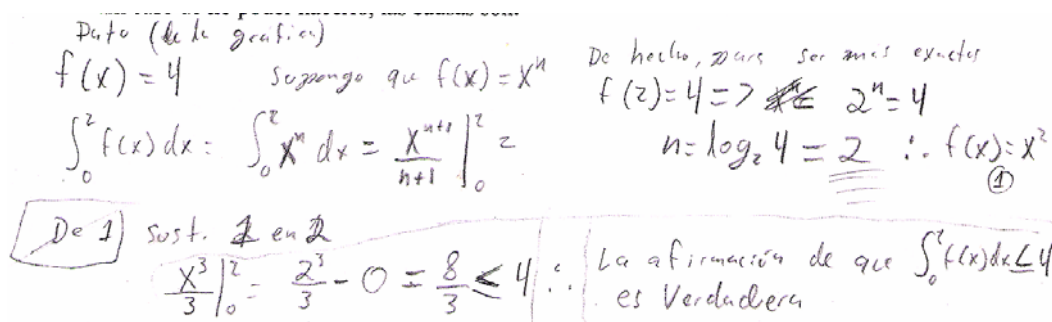 Dato (de la grafica)
f(x) = 4 Supongo que f(x) = x^n
∫_0^2 f(x) dx = ∫_0^2 x^n dx = x^{n+1}/(n+1) |_0^2 =
De hecho, para ser más exactos
f(2) = 4 => 2^n = 4
n = log_2 4 = 2 ∴ f(x) = x^2
①
De 1) sust. 1 en 2
x^3/3 |_0^2 = 2^3/3 - 0 = 8/3 ≤ 4 ∴
La afirmación de que ∫_0^2 f(x) dx ≤ 4
es Verdadera